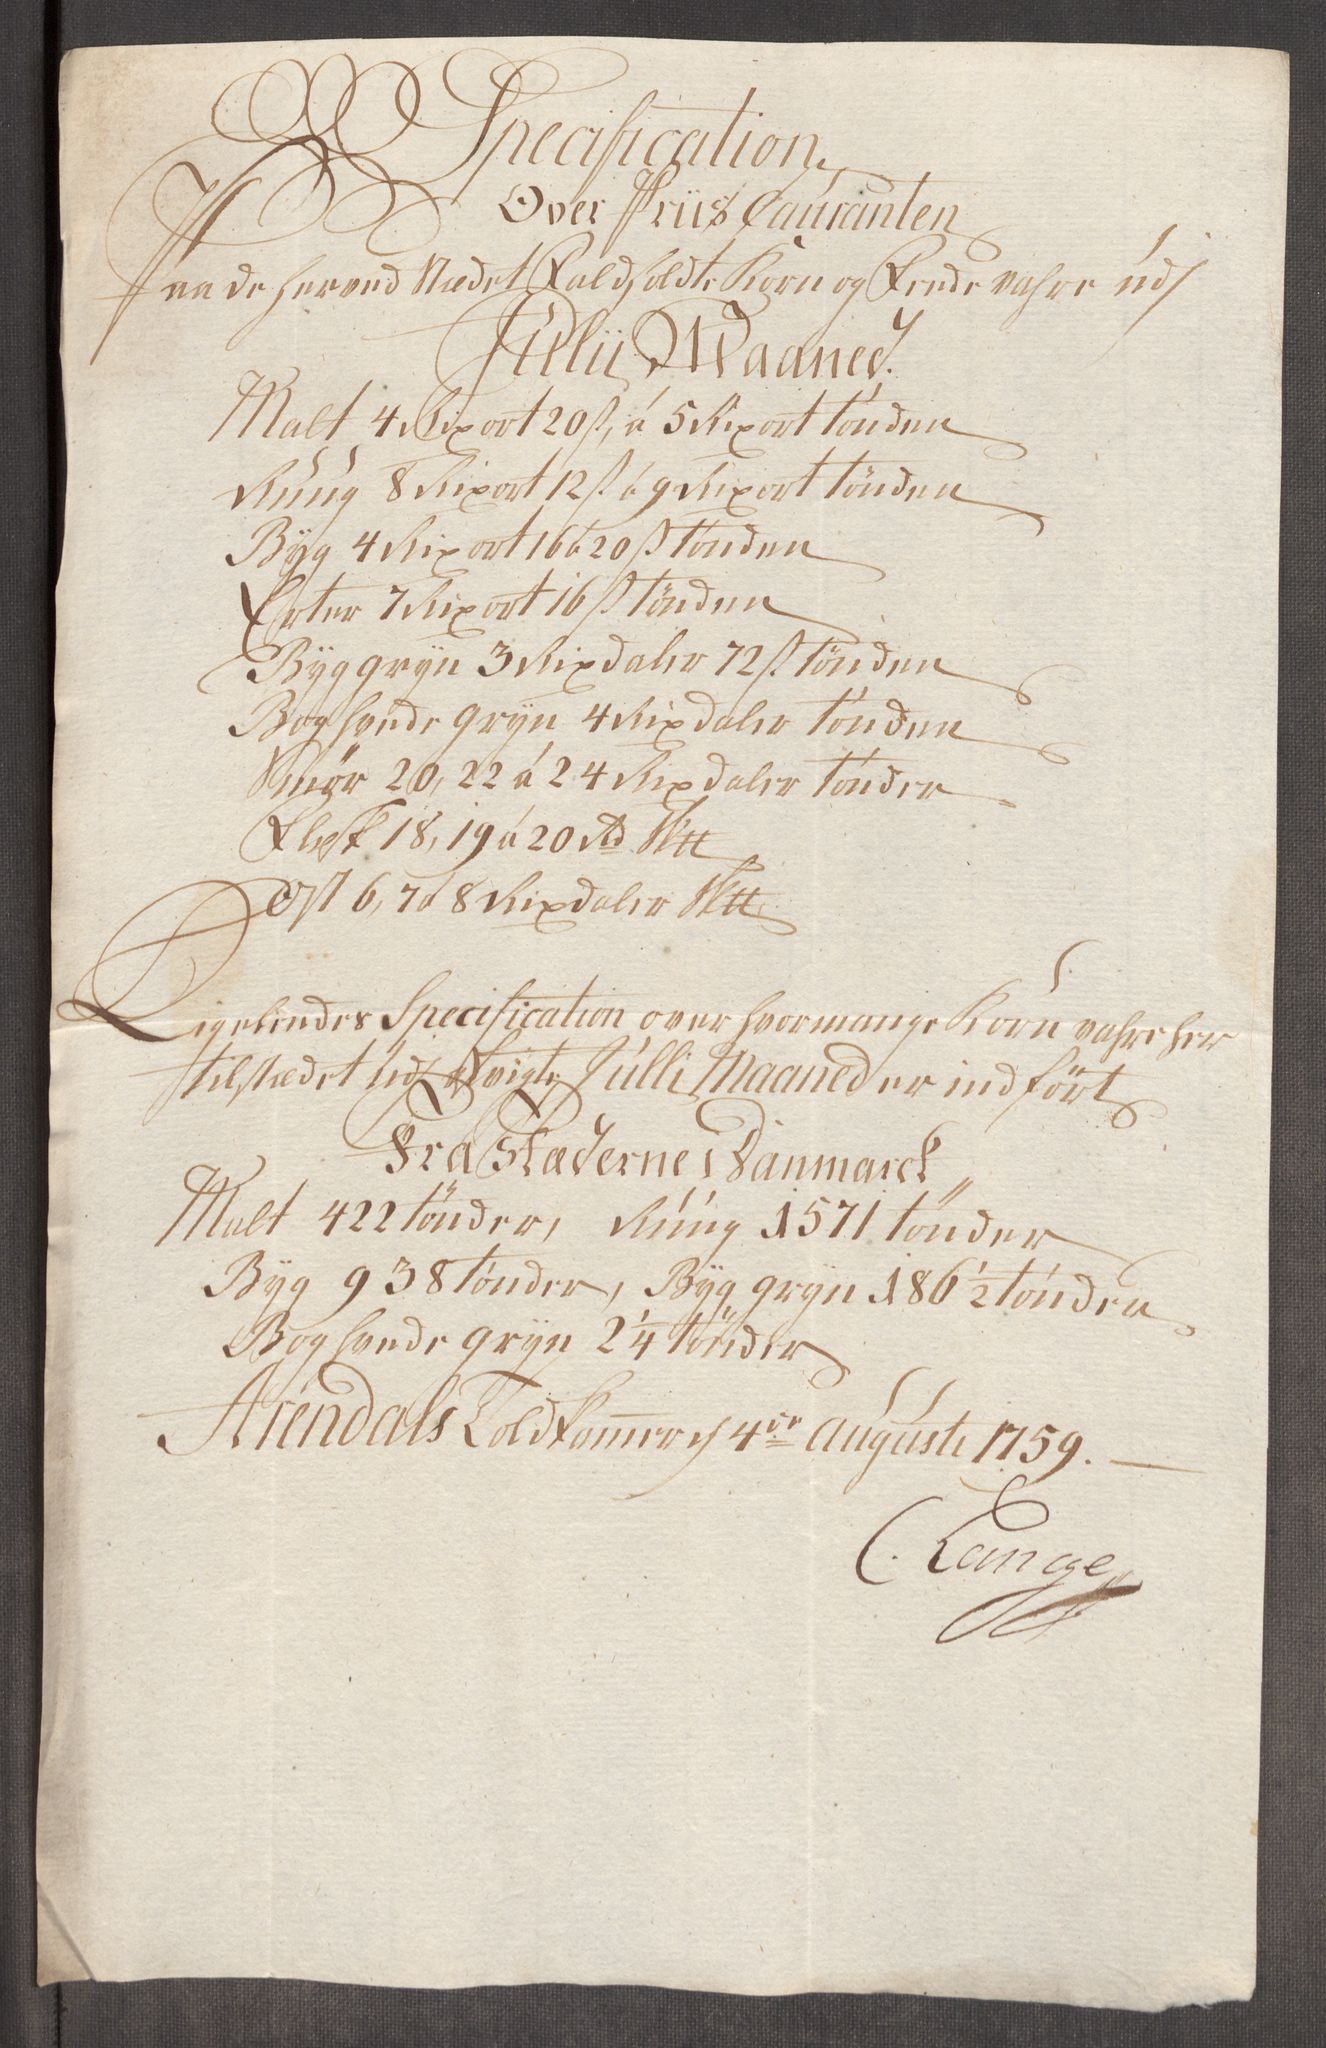 Specification
Over Priis Couranten
Paa de her ved Stædet Faldholdte Korn og Feede vahre udj
Jullii Maaned.
Malt 4 Rixort 20 s, á 5 Rixort tónden
Rúúg 8 Rixort 12 s á 9 Rixort tönden
Byg 4 Rixort 16 á 20 s tónden
Erter 7 Rixort 16 s tönden
Byggryn 3 Rixdaler 72 s. tónden
Boghvede gryn 4 Rixdaler tónden
Smør 20, 22 á 24 Rixdaler tónder
Flesk 18, 19 á 20 Rd
Ost 6, 7 á 8 Rixdaler
Ligeleedes Specification over hvormange Korn vahre her
til Stædet udj Jülli Maaned er indfört
Fra Stæderne i Danmarck
Malt 422 tönder, Rúúg 1571 tönder
Byg 938 tönder, Byg gryn 186 1/2 tönden
Boghvede gryn 2 1/4 tönder
Arendals Toldkammer d 4de Augusti 1759.
C. Lange